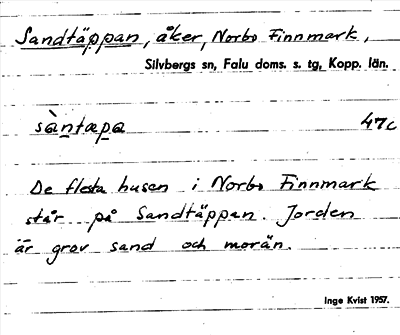 Sandtäppan, åker, Norbo Finnmark,
Silvbergs sn, Falu doms. s. tg, Kopp. län.
sàntæpa 47c
De flesta husen i Norbo Finnmark
står på Sandtäppan. Jorden
är grov sand och morän.
Inge Kvist 1957.